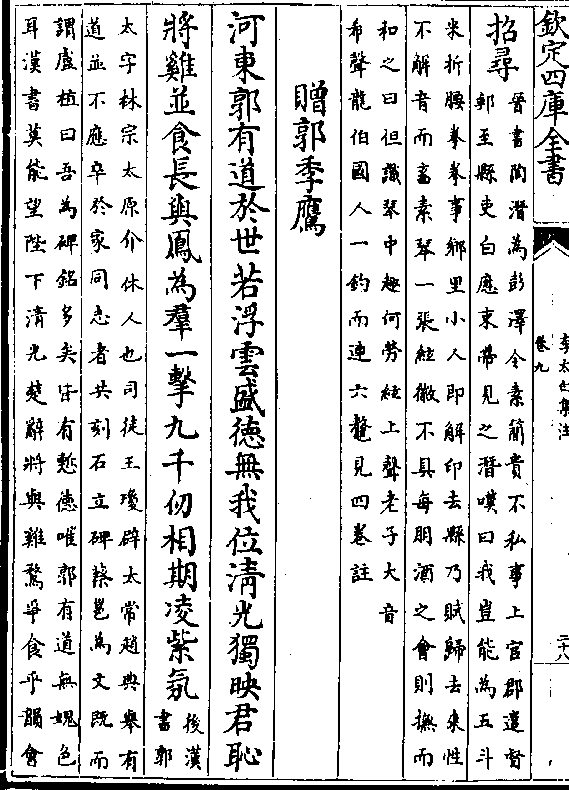 欽定四庫全書
李太白集注
卷九
二十八
招尋
晉書陶潛為彭澤令素簡貴不私事上官郡遣督
郵至縣吏白應束帶見之潛嘆曰我豈能為五斗
米折腰拳拳事鄉里小人即解印去縣乃賦歸去來性
不解音而畜素琴一張絃徽不具每朋酒之會則撫而
和之曰但識琴中趣何勞絃上聲老子大音
希聲龍伯國人一釣而連六鼇見四卷註
贈郭季鷹
河東郭有道於世若浮雲盛德無我位清光獨映君恥
將雞並食長與鳳為羣一擊九千仞相期凌紫氛
後漢
書郭
太字林宗太原介休人也司徒王瓊辟太常趙典舉有
道並不應卒於家同志者共刻石立碑蔡邕為文既而
謂盧植曰吾為碑銘多矣皆有慙德唯郭有道無媿色
耳漢書莫能望陛下清光楚辭將與雞鶩爭食乎韻會